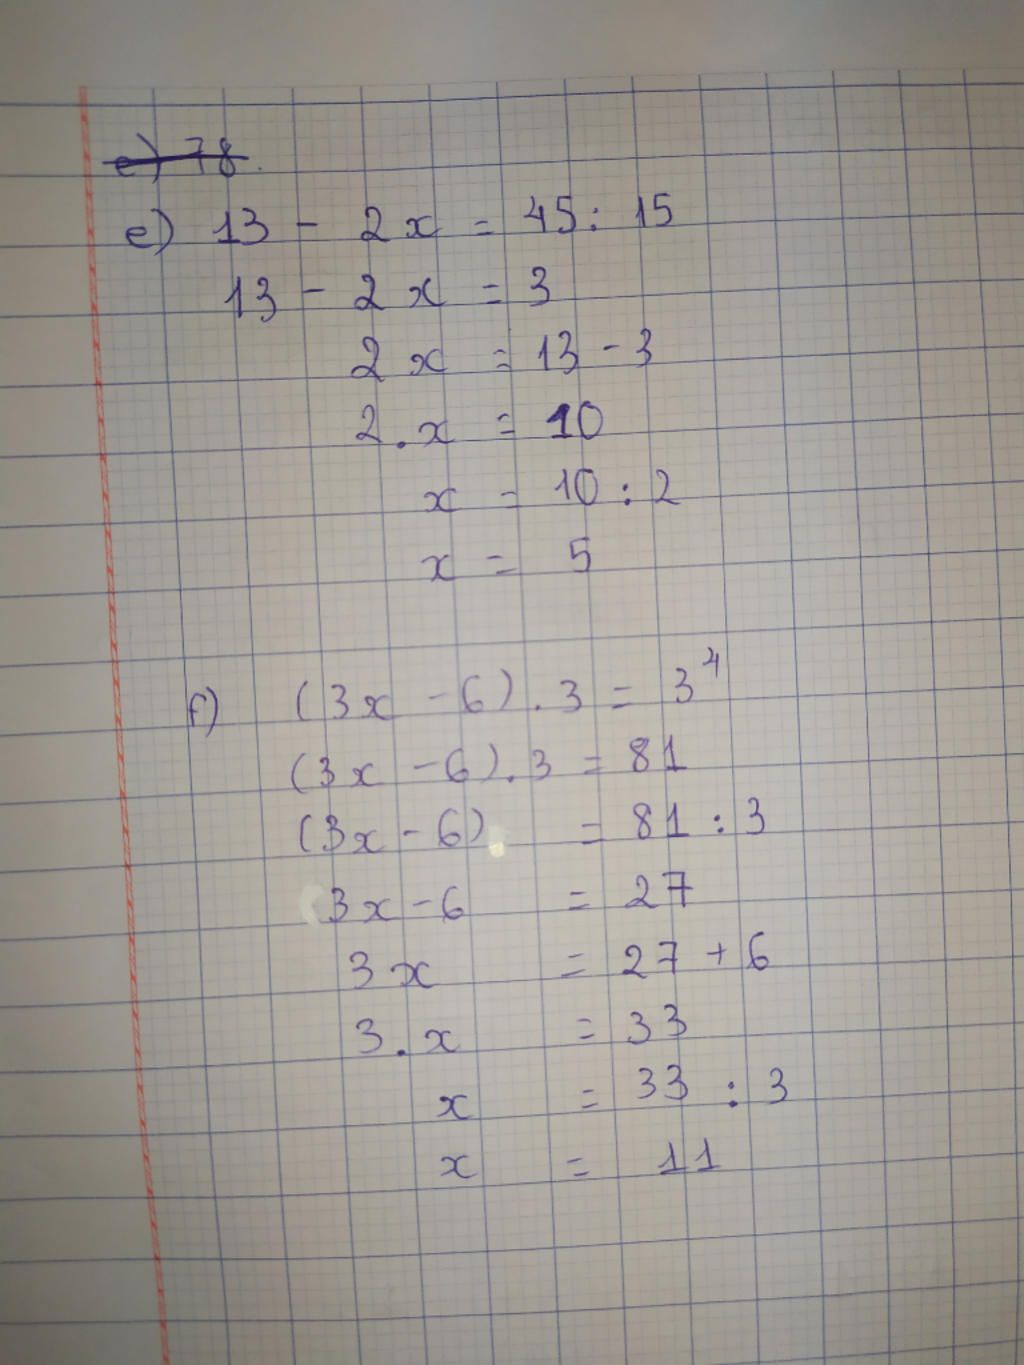 e) 78.
e) 13 - 2x = 45 : 15
13 - 2x = 3
2x = 13 - 3
2.x = 10
x = 10 : 2
x = 5
f) (3x - 6) . 3 = 3⁴
(3x - 6) . 3 = 81
(3x - 6) = 81 : 3
3x - 6 = 27
3x = 27 + 6
3.x = 33
x = 33 : 3
x = 11